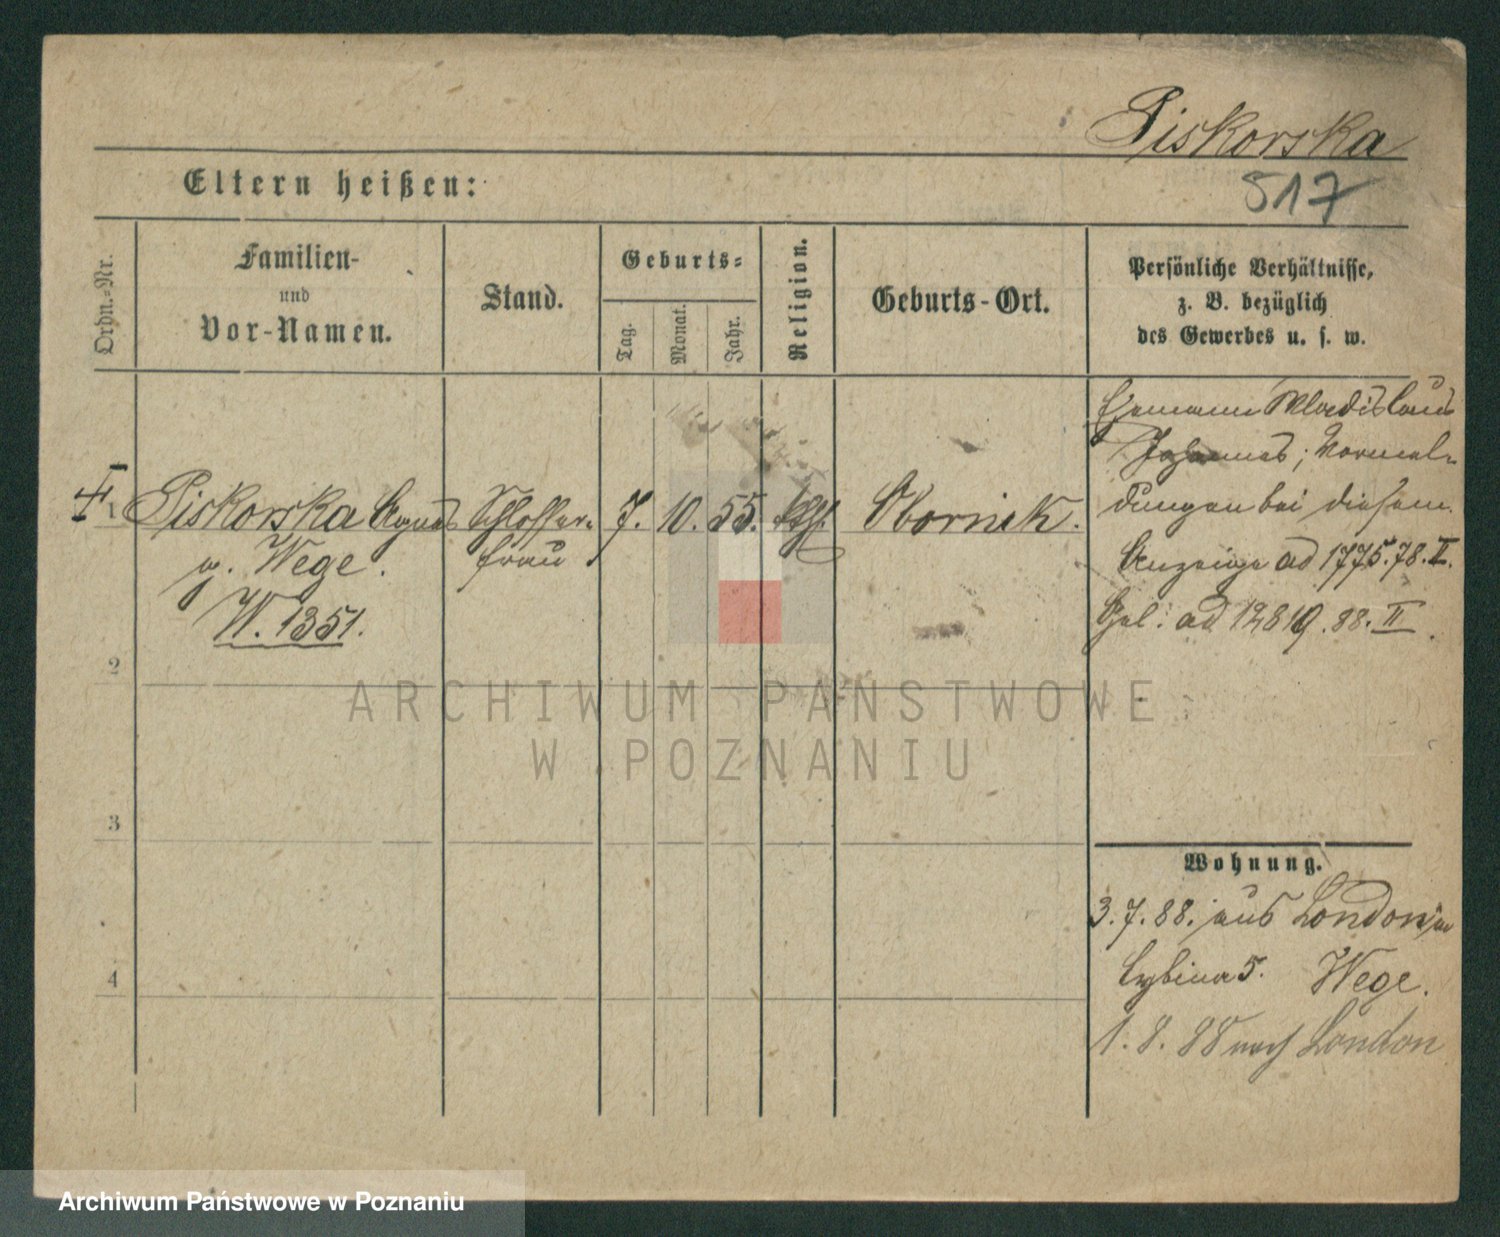 Piskorska
517
Eltern heißen:
Ordn.-Nr.
Familien-
und
Vor-Namen.
Stand.
Geburts-
Tag.
Monat.
Jahr.
Religion.
Geburts-Ort.
Persönliche Verhältnisse,
z. B. bezüglich
des Gewerbes u. s. w.
1
Piskorska Agnes
g. Wege.
W. 1351.
Schlosser-
frau
7.
10.
55.
kth.
Obornik.
Ehemann Wladislaus
Johannes; Vormel-
dungen bei diesem.
Anzeige ad 1775.78.II.
ad 12819.88.II.
2
3
4
Wohnung.
3.7.88. aus London
Cybina 5. Wege.
1.8.88 nach London
ARCHIWUM PAŃSTWOWE
W POZNANIU
Archiwum Państwowe w Poznaniu